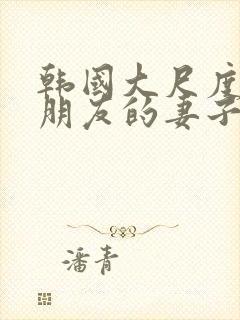 韩國大尺度
朋友的妻子
潘青